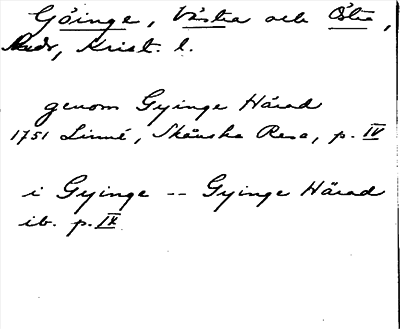 Göinge, Västra och Östra,
hdr, Krist. l.
genom Gyinge Härad
1751 Linné, Skånska Resa, p. IV
i Gyinge -- Gyinge Härad
ib. p. IX